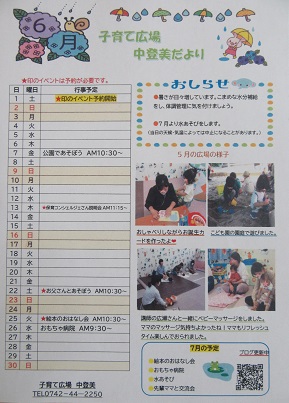 6月
子育て広場
中登美だより
★印のイベントは予約が必要です。
日 曜日 行事予定
1 土 ★印のイベント予約開始
2 日
3 月
4 火
5 水
6 木
7 金 公園であそぼう AM10:30～
8 土
9 日
10 月
11 火
12 水
13 木 ★保育コンシェルジュさん説明会 AM11:15～
14 金
15 土
16 日
17 月
18 火
19 水
20 木
21 金
22 土 ★お父さんとあそぼう AM10:30～
23 日
24 月
25 火 ★絵本のおはなし会 AM10:30～
26 水 おもちゃ病院 AM9:30～
27 木
28 金
29 土
30 日
子育て広場 中登美
TEL0742-44-2250
おしらせ
暑さが日々増しています。こまめな水分補給
をし、体調管理に気を付けましょう。
7月より水あそびをします。
(当日の天候・気温によっては中止になることがあります。)
5月の広場の様子
おしゃべりしながらお誕生
カードを作ったよ❤
こども園の園庭で遊びました。
講師の広瀬さんと一緒にベビーマッサージをしました。
ママのマッサージ気持ちよかったね！ママもリフレッシュ
タイム楽しんでおられました。
7月の予定
絵本のおはなし会
おもちゃ病院
水あそび
先輩ママと交流会
ブログ更新中